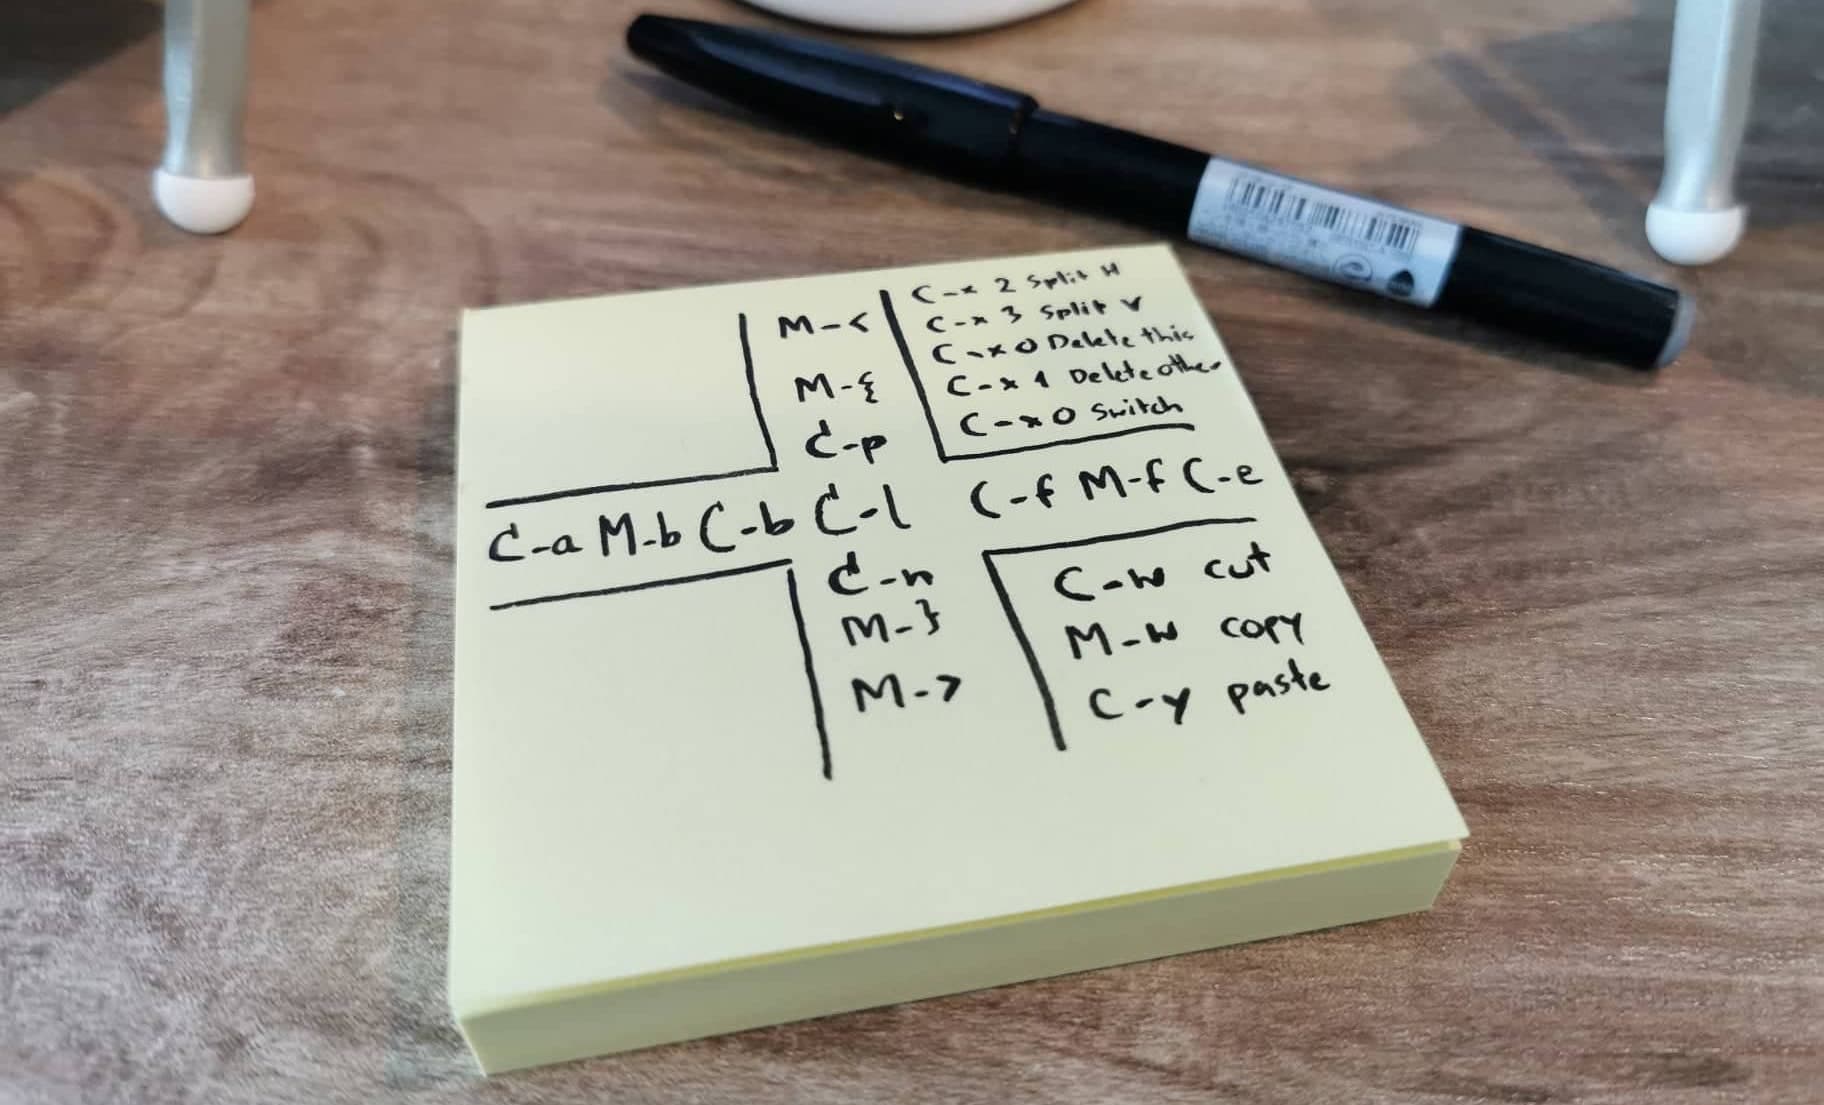 M-<
M-{
C-p
C-x 2 Split H
C-x 3 Split V
C-x 0 Delete this
C-x 1 Delete other
C-x O Switch
C-a M-b C-b C-l C-f M-f C-e
C-n
M-}
M->
C-w cut
M-w copy
C-y paste